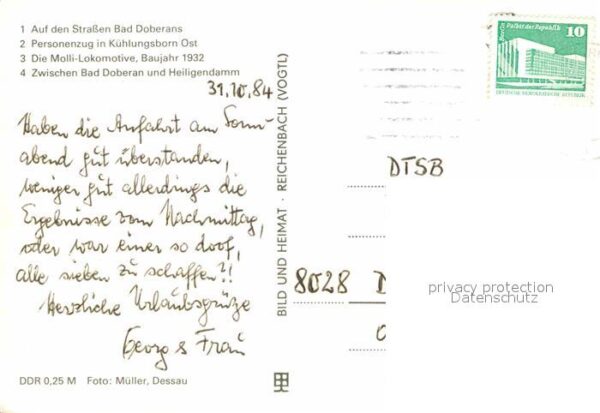 1 Auf den Straßen Bad Doberans
2 Personenzug in Kühlungsborn Ost
3 Die Molli-Lokomotive, Baujahr 1932
4 Zwischen Bad Doberan und Heiligendamm
31.10.84
Haben die Anfahrt am Sonn-
abend gut überstanden,
weniger gut allerdings die
Ergebnisse vom Nachmittag,
oder war einer so doof,
alle sieben zu schaffen?!
Herzliche Urlaubsgrüße
Georg & Frau
DDR 0,25 M Foto: Müller, Dessau
BILD UND HEIMAT · REICHENBACH (VOGTL)
Berlin Palast der Republik
10
DEUTSCHE DEMOKRATISCHE REPUBLIK
DTSB
8028 D
privacy protection
Datenschutz